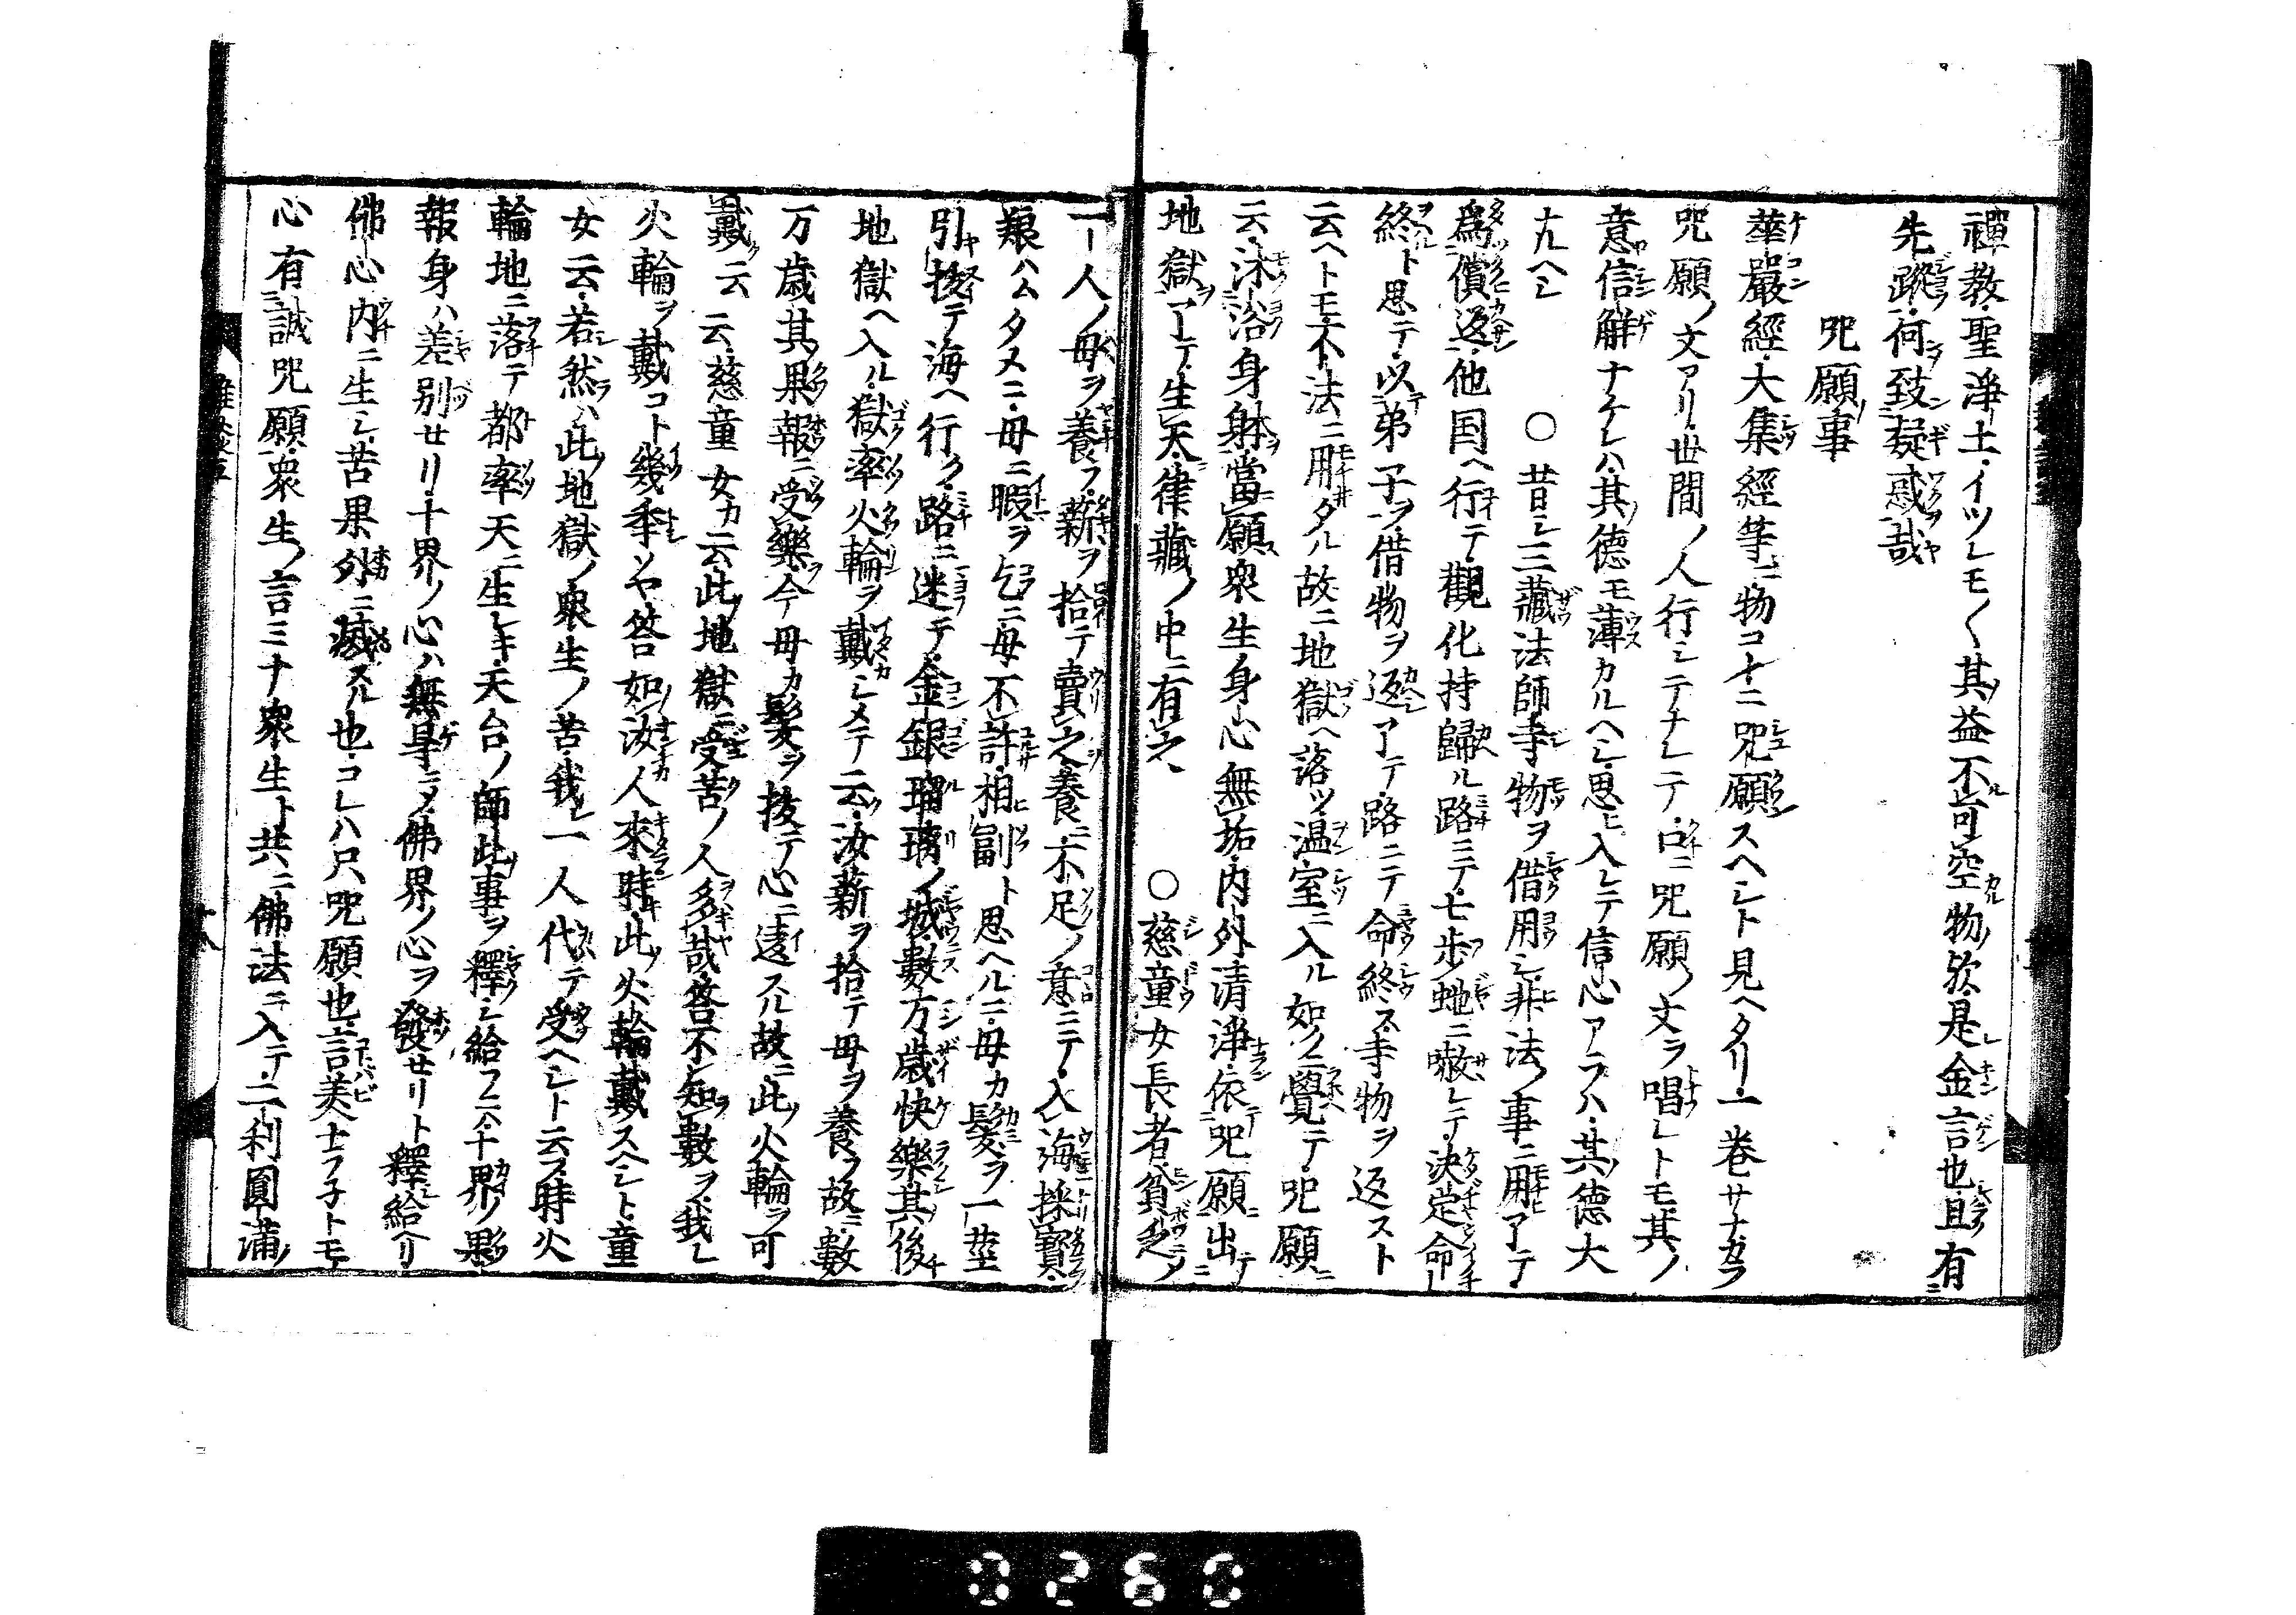 禪教聖淨土イツレモ〱其益不可空物歟是金言也且有
先蹤何致疑惑哉
呪願事
華嚴經大集經等ニ物コトニ呪願スヘシト見ヘタリ一卷サナカラ
呪願ノ文アリ世間ノ人行シテナレテ口ニ呪願ノ文ヲ唱レトモ其ノ
意信解ナケレハ其德モ薄カルヘシ思ヒ入レテ信心アラハ其德大
ナルヘシ　○　昔シ三藏法師寺物ヲ借用シ非法ノ事ニ用アテ
爲償返他国ヘ行テ觀化持歸ル路ニテ七步蛇ニ嗷レテ決定命
終ト思テ以弟子ヲ借物ヲ返アテ路ニテ命終ス寺物ヲ返スト
云ヘトモ不法ニ用タル故ニ地獄ヘ落ツ温室ニ入ル如ク覺テ呪願
云沐浴身躰當願衆生身心無垢内外清淨依呪願出
地獄アテ生天律藏ノ中ニ有之　○慈童女長者貧乏
一人ノ母ヲ養フ薪ヲ拾テ賣之養ニ不足ノ意ニテ入海採寶
粮ハムタメニ母ニ暇ヲ乞ニ母不許相副ト思ヘルニ母カ髮ヲ一莖
引拔テ海ヘ行ク路ニ迷テ金銀瑠璃ノ城數万歳快樂其後
地獄ヘ入ル獄率火輪ヲ戴シメテ云汝薪ヲ拾テ母ヲ養フ故ニ數
万歳其果報ニ受樂今母カ髮ヲ拔テ心ニ違スル故ニ此火輪ヲ可
戴云云慈童女カ云此地獄ニ受苦ノ人多哉答不知數ヲ我レ
火輪ヲ戴コト幾年ソヤ答如汝人來時此火輪戴スヘシト童
女云若然ハ此地獄ノ衆生ノ苦我レ一人代テ受ヘシト云フ時火
輪地ニ落テ都率天ニ生レキ天台ノ師此事ヲ釋シ給フニ十界ノ果
報身ハ差別セリ十界ノ心ハ無㝵ニメ佛界ノ心ヲ發セリト釋給ヘリ
佛心内ニ生シ苦果外ニ滅スル也コレハ只呪願也言美士フ子トモ
心有誠呪願衆生ノ言ミナ衆生ト共ニ佛法ニ入テ二利圓滿ノ